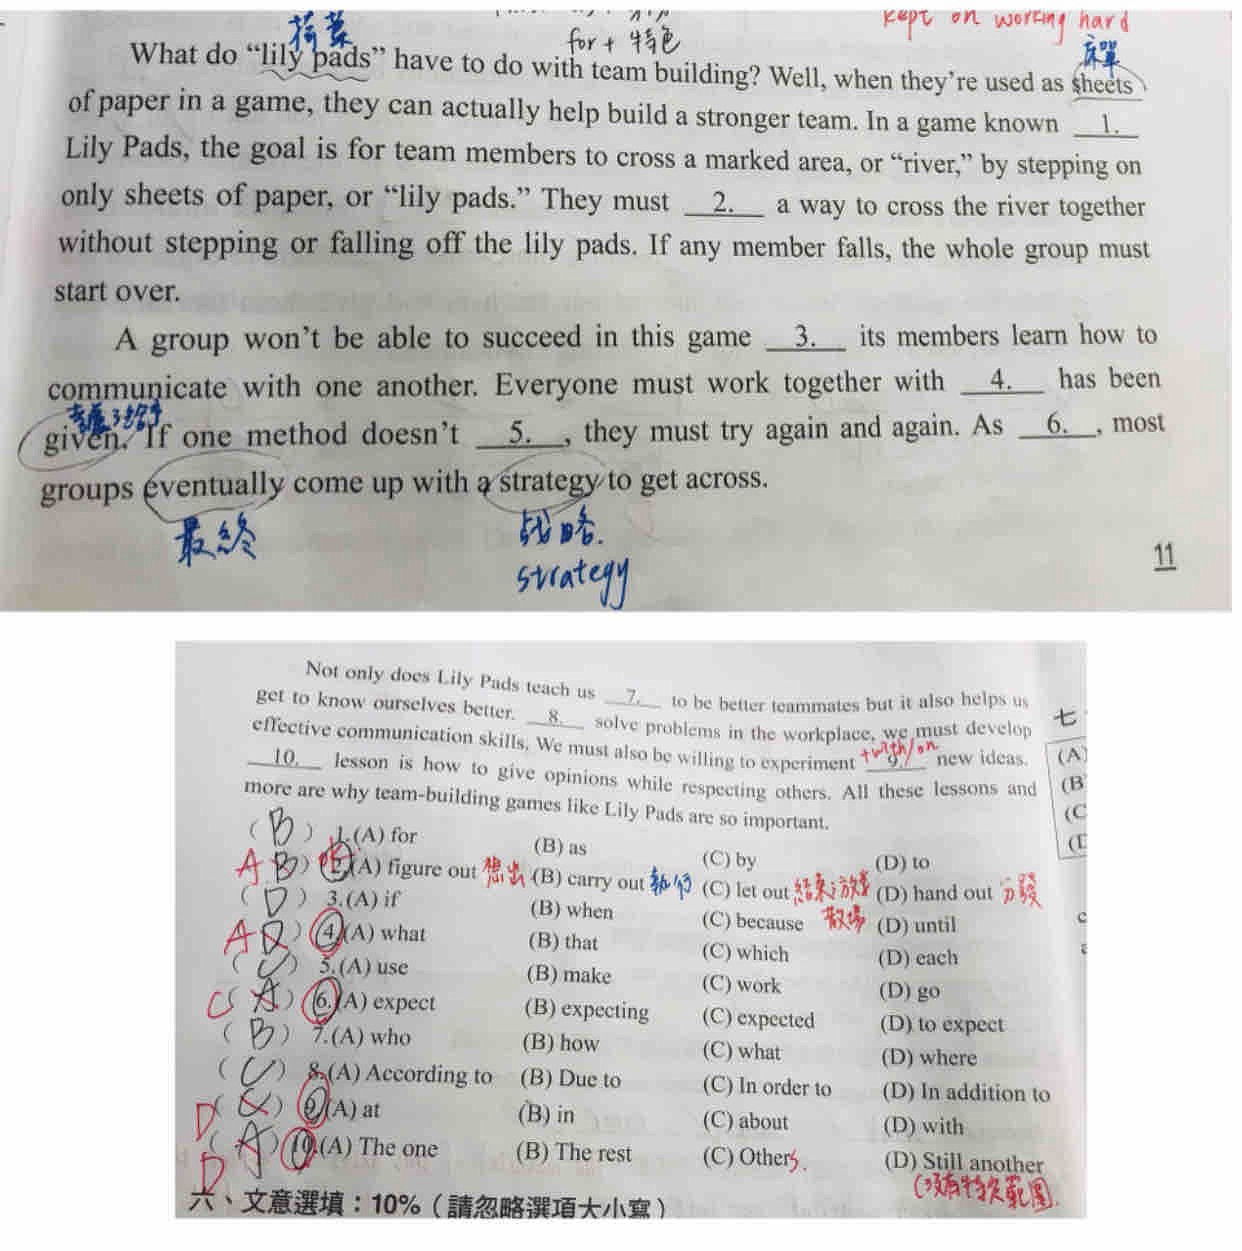 kept on working hard
荷葉
for + 特色
床單
What do “lily pads” have to do with team building? Well, when they’re used as sheets
of paper in a game, they can actually help build a stronger team. In a game known 1.
Lily Pads, the goal is for team members to cross a marked area, or “river,” by stepping on
only sheets of paper, or “lily pads.” They must 2. a way to cross the river together
without stepping or falling off the lily pads. If any member falls, the whole group must
start over.
A group won’t be able to succeed in this game 3. its members learn how to
communicate with one another. Everyone must work together with 4. has been
given. If one method doesn’t 5. , they must try again and again. As 6. , most
groups eventually come up with a strategy to get across.
最終
战略.
strategy
11
Not only does Lily Pads teach us 7. to be better teammates but it also helps us
get to know ourselves better. 8. solve problems in the workplace, we must develop
effective communication skills. We must also be willing to experiment 9. new ideas.
+with/on
10. lesson is how to give opinions while respecting others. All these lessons and
more are why team-building games like Lily Pads are so important.
七
(A)
(B
(C
(D
(B) 1.(A) for (B) as (C) by (D) to
A (B) 2.(A) figure out 想出 (B) carry out 執行 (C) let out 結束;放掉 (D) hand out 分發
散場
(D) 3.(A) if (B) when (C) because (D) until
A (D) 4.(A) what (B) that (C) which (D) each
(C) 5.(A) use (B) make (C) work (D) go
C (A) 6.(A) expect (B) expecting (C) expected (D) to expect
(B) 7.(A) who (B) how (C) what (D) where
(C) 8.(A) According to (B) Due to (C) In order to (D) In addition to
D 9.(A) at (B) in (C) about (D) with
D (A) 10.(A) The one (B) The rest (C) Others. (D) Still another
(沒有特定範圍).
六、文意選填：10%（請忽略選項大小寫）